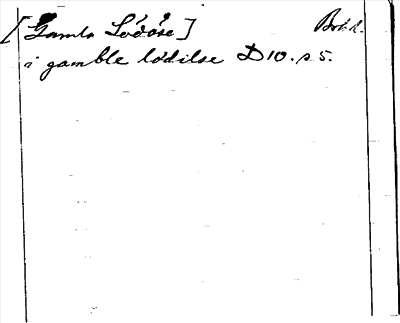 [Gamla Lödöse] Boh. l.
i gamble lödilse D10. s 5.